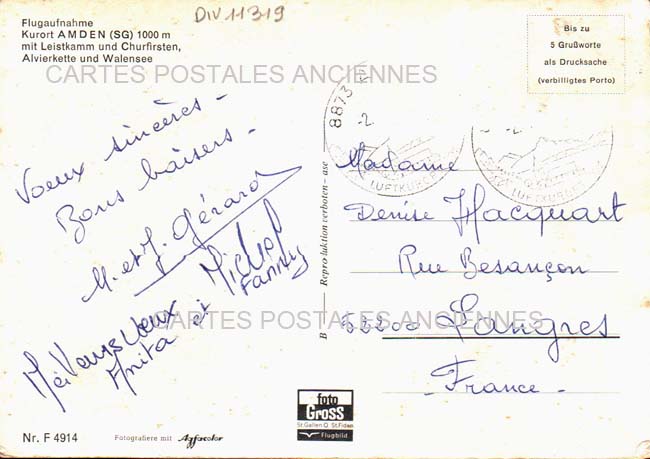 DIV11319
Flugaufnahme
Kurort AMDEN (SG) 1000 m
mit Leistkamm und Churfirsten,
Alvierkette und Walensee
Bis zu
5 Grußworte
als Drucksache
(verbilligtes Porto)
CARTES POSTALES ANCIENNES
8873
-2.
LUFTKUR
LUFTKURORT
Voeux sincères -
Bons baisers -
M. et J. Gérard
Michel
Fanny
Meilleurs Voeux
Anita et
Madame
Denise Hacquart
Rue Besançon
52200 Langres
- France -
CARTES POSTALES ANCIENNES
B Reproduktion verboten - ase
foto
GROSS
St.Gallen O. St.Fiden
Flugbild
Nr. F 4914
Fotografiere mit Agfacolor